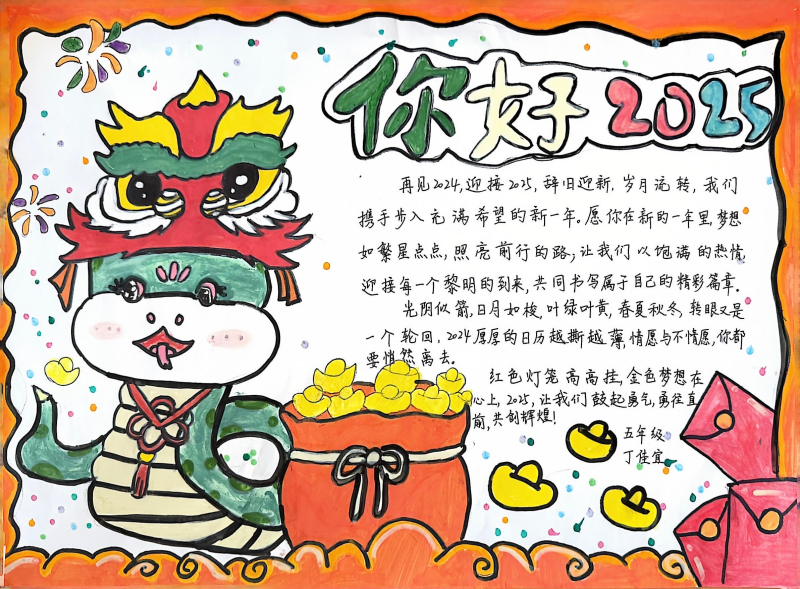 你好2025
再见2024,迎接2025,辞旧迎新,岁月流转,我们
携手步入充满希望的新一年。愿你在新的一年里,梦想
如繁星点点,照亮前行的路,让我们以饱满的热情
迎接每一个黎明的到来,共同书写属于自己的精彩篇章。
光阴似箭,日月如梭,叶绿叶黄,春夏秋冬,转眼又是
一个轮回,2024厚厚的日历越撕越薄,情愿与不情愿,你都
要悄然离去。
红色灯笼高高挂,金色梦想在
心上,2025,让我们鼓起勇气,勇往直
前,共创辉煌!
五年级
丁佳宜